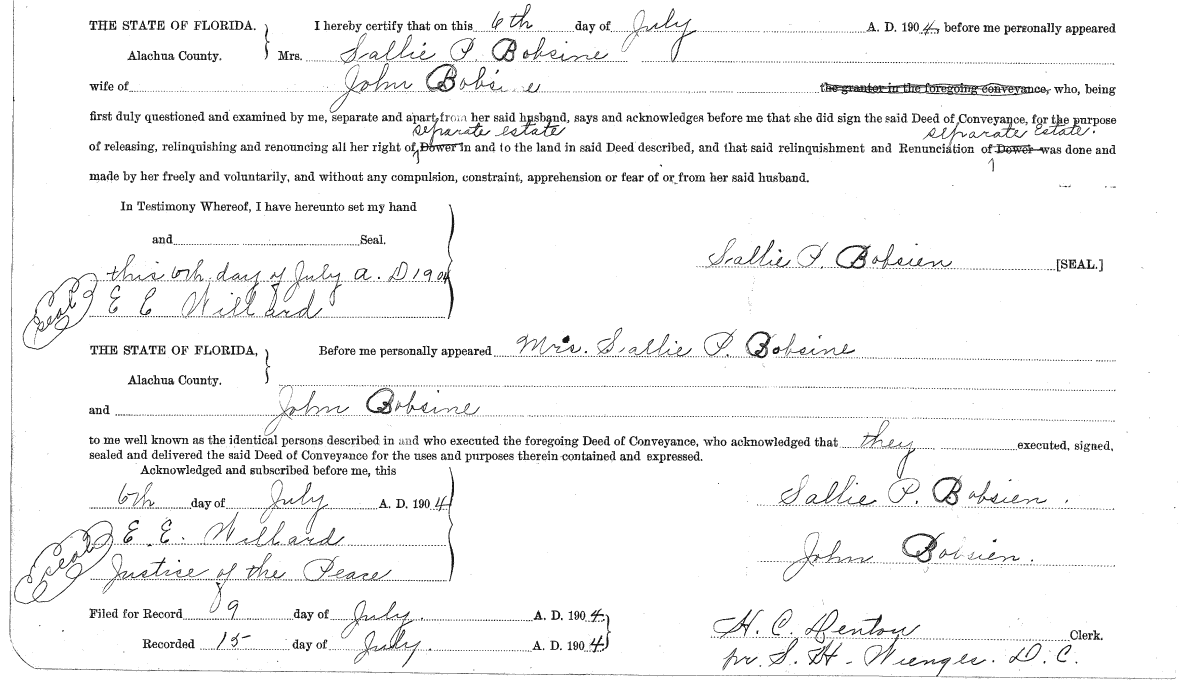 THE STATE OF FLORIDA. I hereby certify that on this 6th day of July A. D. 1904, before me personally appeared
Alachua County. Mrs. Sallie P. Bobsine
wife of John Bobsine the grantor in the foregoing conveyance, who, being
first duly questioned and examined by me, separate and apart from her said husband, says and acknowledges before me that she did sign the said Deed of Conveyance, for the purpose
separate estate separate Estate.
of releasing, relinquishing and renouncing all her right of Dower in and to the land in said Deed described, and that said relinquishment and Renunciation of Dower was done and
made by her freely and voluntarily, and without any compulsion, constraint, apprehension or fear of or from her said husband.
In Testimony Whereof, I have hereunto set my hand
and Seal.
Sallie P. Bobsien [SEAL.]
this 6th day of July A. D 1904
(Seal) E E Willard
THE STATE OF FLORIDA, Before me personally appeared Mrs. Sallie P. Bobsine
Alachua County.
and John Bobsine
to me well known as the identical persons described in and who executed the foregoing Deed of Conveyance, who acknowledged that they executed, signed,
sealed and delivered the said Deed of Conveyance for the uses and purposes therein contained and expressed.
Acknowledged and subscribed before me, this
6th day of July A. D. 1904 Sallie P. Bobsien.
(Seal) E. E. Willard
John Bobsien.
Justice of the Peace
Filed for Record 9 day of July. A. D. 1904.
H. C. Denton Clerk.
Recorded 15 day of July. A. D. 1904.
pr. S. H. Wienges. D. C.